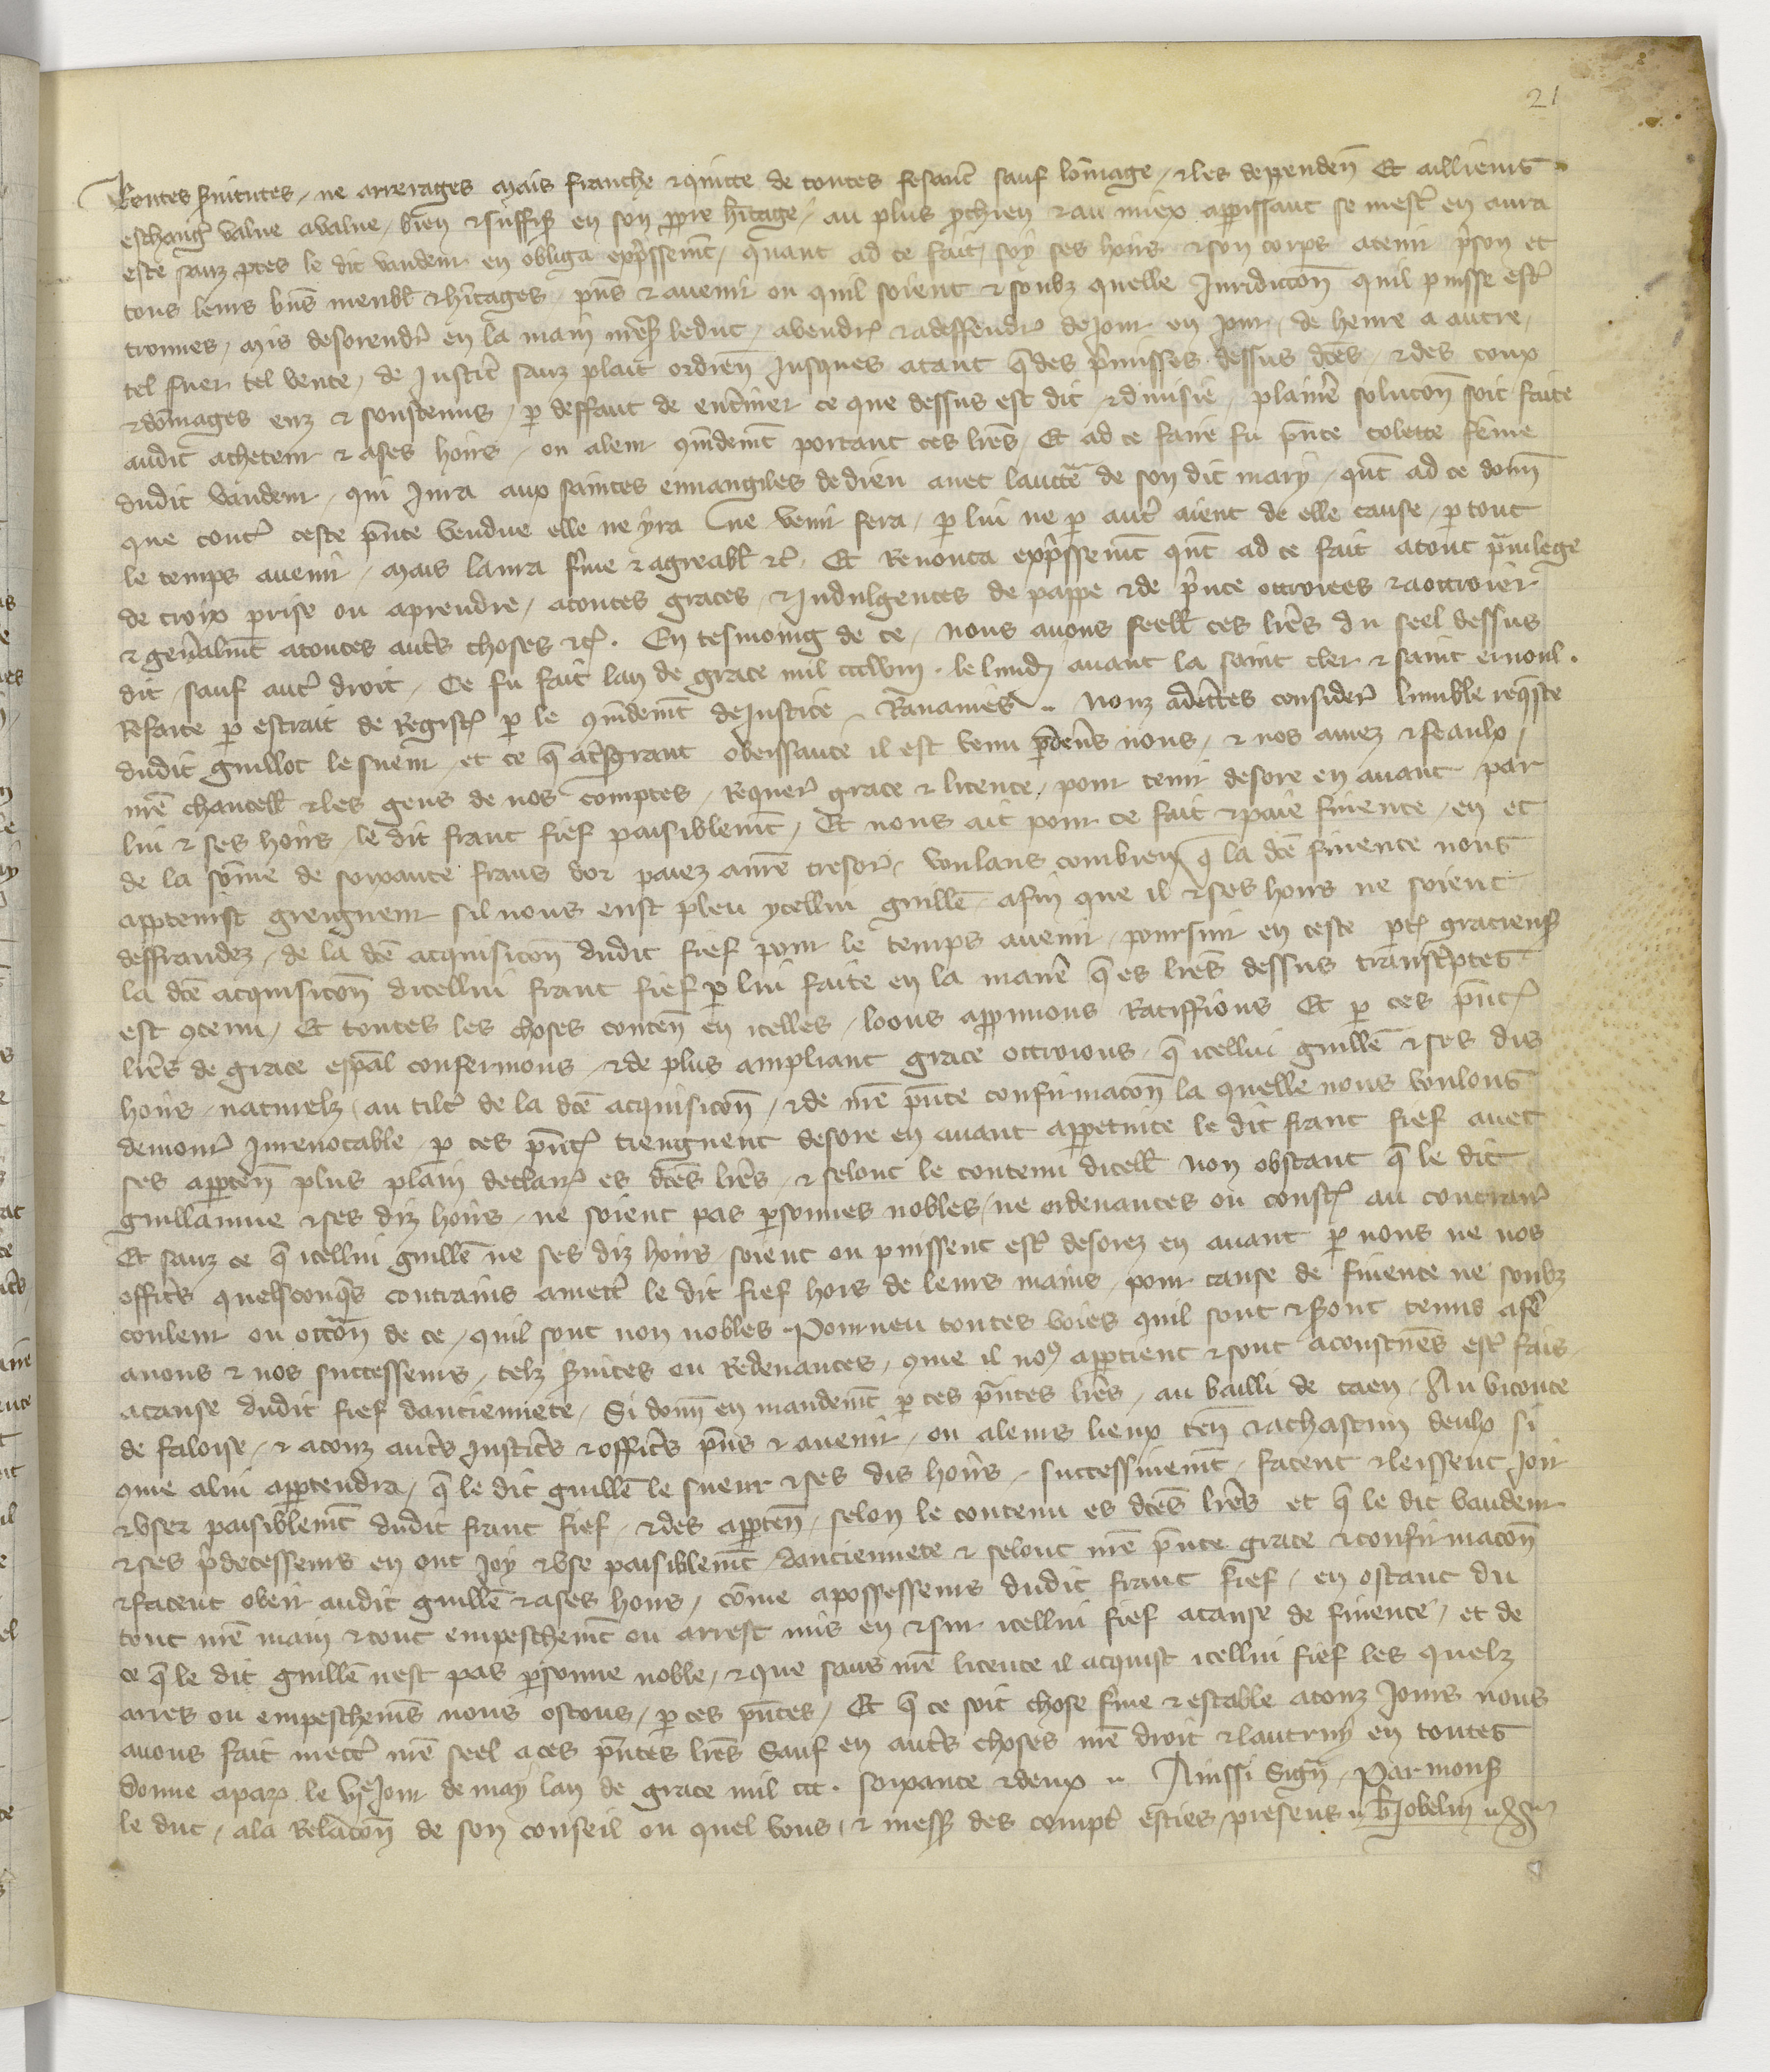 21
Rentes servitutes, ne arrerages mais franche et quitte de toutes fesanc sauf lommage, et les dependen Et aillieurs
eschang value a value, bien et suffis en son ppre hitage, au plus pchien et au miex apparissant se mest en aura
este sanz ptes le dit vandeur en obliga expssemt, quant ad ce fait, soy ses hoirs et son corps a tenir pson et
tous leurs biens meubl et hitages, pns et avenir ou quil soient et soubz quelle Juridiccon quil puisse est
trouves, mis desorendr en la main mess le duc, a vendr et a deffendr de Jour en Jour, de heure a autre,
tel fuer tel vente, de Justic sanz plait ordien Jusques a tant q des pmisses dessus dces, et des coux
et dommages euz et soustenus, p deffaut de entiner ce que dessus est dit, et devisie, plainie solucon soit faite
audit acheteur et a ses hoirs, ou a leur gmdemt portant ces lres, Et ad ce faire fu pnte Colette feme
dudit vandeur, qui Jura aux saintes euvangiles de dieu avec lauctte de son dit mary, qnt ad ce donn
que cont ceste pnte vendue elle ne yra ne venir fera, p lui ne p aut aient de elle cause, p tout
le temps avenir, mais laura fme et agreabl etc. Et Renonca expssemt qnt ad ce fait a tout pvilege
de croix prise ou a prendre, a toutes graces, et Indulgences de pappe et de pnce ottroiees et a ottroier
et genalmt a toutes auts choses etc. En tesmoing de ce, nous avons seell ces lres du seel dessus
dit, sauf aut droit, Ce fu fait lan de grace mil ccclviii. le lundi avant la saint cler et saint ernoul.
Refaite p estrait de Regist p le gmdemt de Justice, Ravaines. Nouz adctes consider lumble reqste
dudit guillot le sueur, et ce q a tsgrant obeissance il est venu pdevs nous, et nos amez et feaulx,
nre chancell et les gens de nos comptes, Requer grace et licence, pour tenir desore en avant par
lui et ses hoirs, le dit franc fief paisiblemt, Et nous ait pour ce fait et paie finence, en et
de la somme de soixante frans dor paiez a nre tresor, voulans combien q la dce finence nous
apptenist greigneur sil nous eust pleu ycellui guille, afin que il et ses hoirs ne soient
deffraudez, de la dce acquisicon dudit fief pour le temps avenir, poursuir en ceste ptie gracieuse
la dce acquisicon dicellui franc fief p lui faite en la manie q es lres dessus transcptes
est gtenu, Et toutes les choses conten en icelles, loons appvuons Ratiffions Et p ces pnt
lres de grace espal confermons, et de plus ampliant grace ottroions, q icellui guille et ses dis
hoirs, naturelz, au tilt de la dce acquisicon, et de nre pnte confirmacon la quelle nous voulons
demour Inrevocable, p ces pnt tiengnent desore en avant appetuite le dit franc fief avec
ses apptem plus plain declar es dces lres, et selonc le contenu dicell non obstant q le dit
guillaume et ses diz hoirs, ne soient pas psonnes nobles, ne ordenances ou const au contrair
Et sanz ce q icellui guille ne ses diz hoirs, soient ou puissent est desorez en avant p nous ne nos
offics quelsconqs contrains a mett le dit fief hors de leurs mains, pour cause de finence ne soubz
couleur ou occon de ce, quil sont non nobles Pourveu toutes voies quil sont et sont tenus a fe
a nous et nos successeurs, telz svices ou Redevances, gme il no9 apptient et sont acoustues est fais
a cause dudit fief danciennete, Si donn en mandemt p ces pntes lres, au bailli de caen, Au viconte
de faloise, et a touz auts Justics et offics pns et avenir, ou a leurs lieux ten et a chascun deulx si
gme a lui apptendra, q le dit guille le sueur et ses dis hoirs, successivemt, facent et leissent Joir
et user paisiblemt dudit franc fief, et des apptem, selon le contenu es dces lres et q le dit vandeur
et ses pdecesseurs en ont Joy et use paisiblemt, danciennete et selonc nre pnte grace et confirmacon
et facent obeir audit guille et a ses hoirs, comme a possesseurs dudit franc fief, en ostant du
tout nre main et tout empeschemt ou arrest mis en et sur icellui fief a cause de finence, et de
ce q le dit guille nest pas psonne noble, et que sans nre licence il acquist icellui fief les quelz
arres ou empeschems nous ostons, p ces pntes, Et q ce soit chose fme et estable a touz Jours nous
avons fait mett nre seel a ces pntes lres Sauf en auts choses nre droit et lautruy en toutes
donne a par le vje Jour de may lan de grace mil ccc. soixante et deux. Ainssi Sign, Par mons
le duc, a la Relacon de son conseil ou quel vous, et mess des compt esties, presens. Jobelin